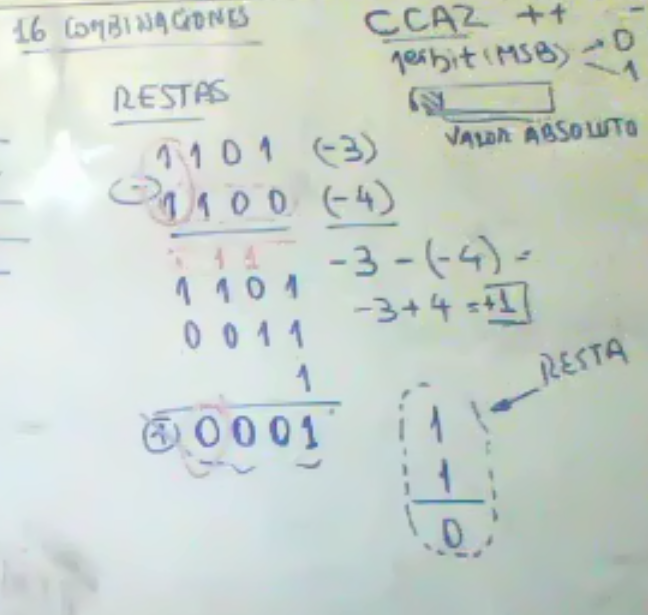 16 COMBINACIONES
CCA2 ++ -
1er bit (MSB) 0
1
VALOR ABSOLUTO
RESTAS
1101 (-3)
(-) 1100 (-4)
1 1 1
1101
0011
1
0001
-3-(-4)=
-3+4=+1
RESTA
1
1
0